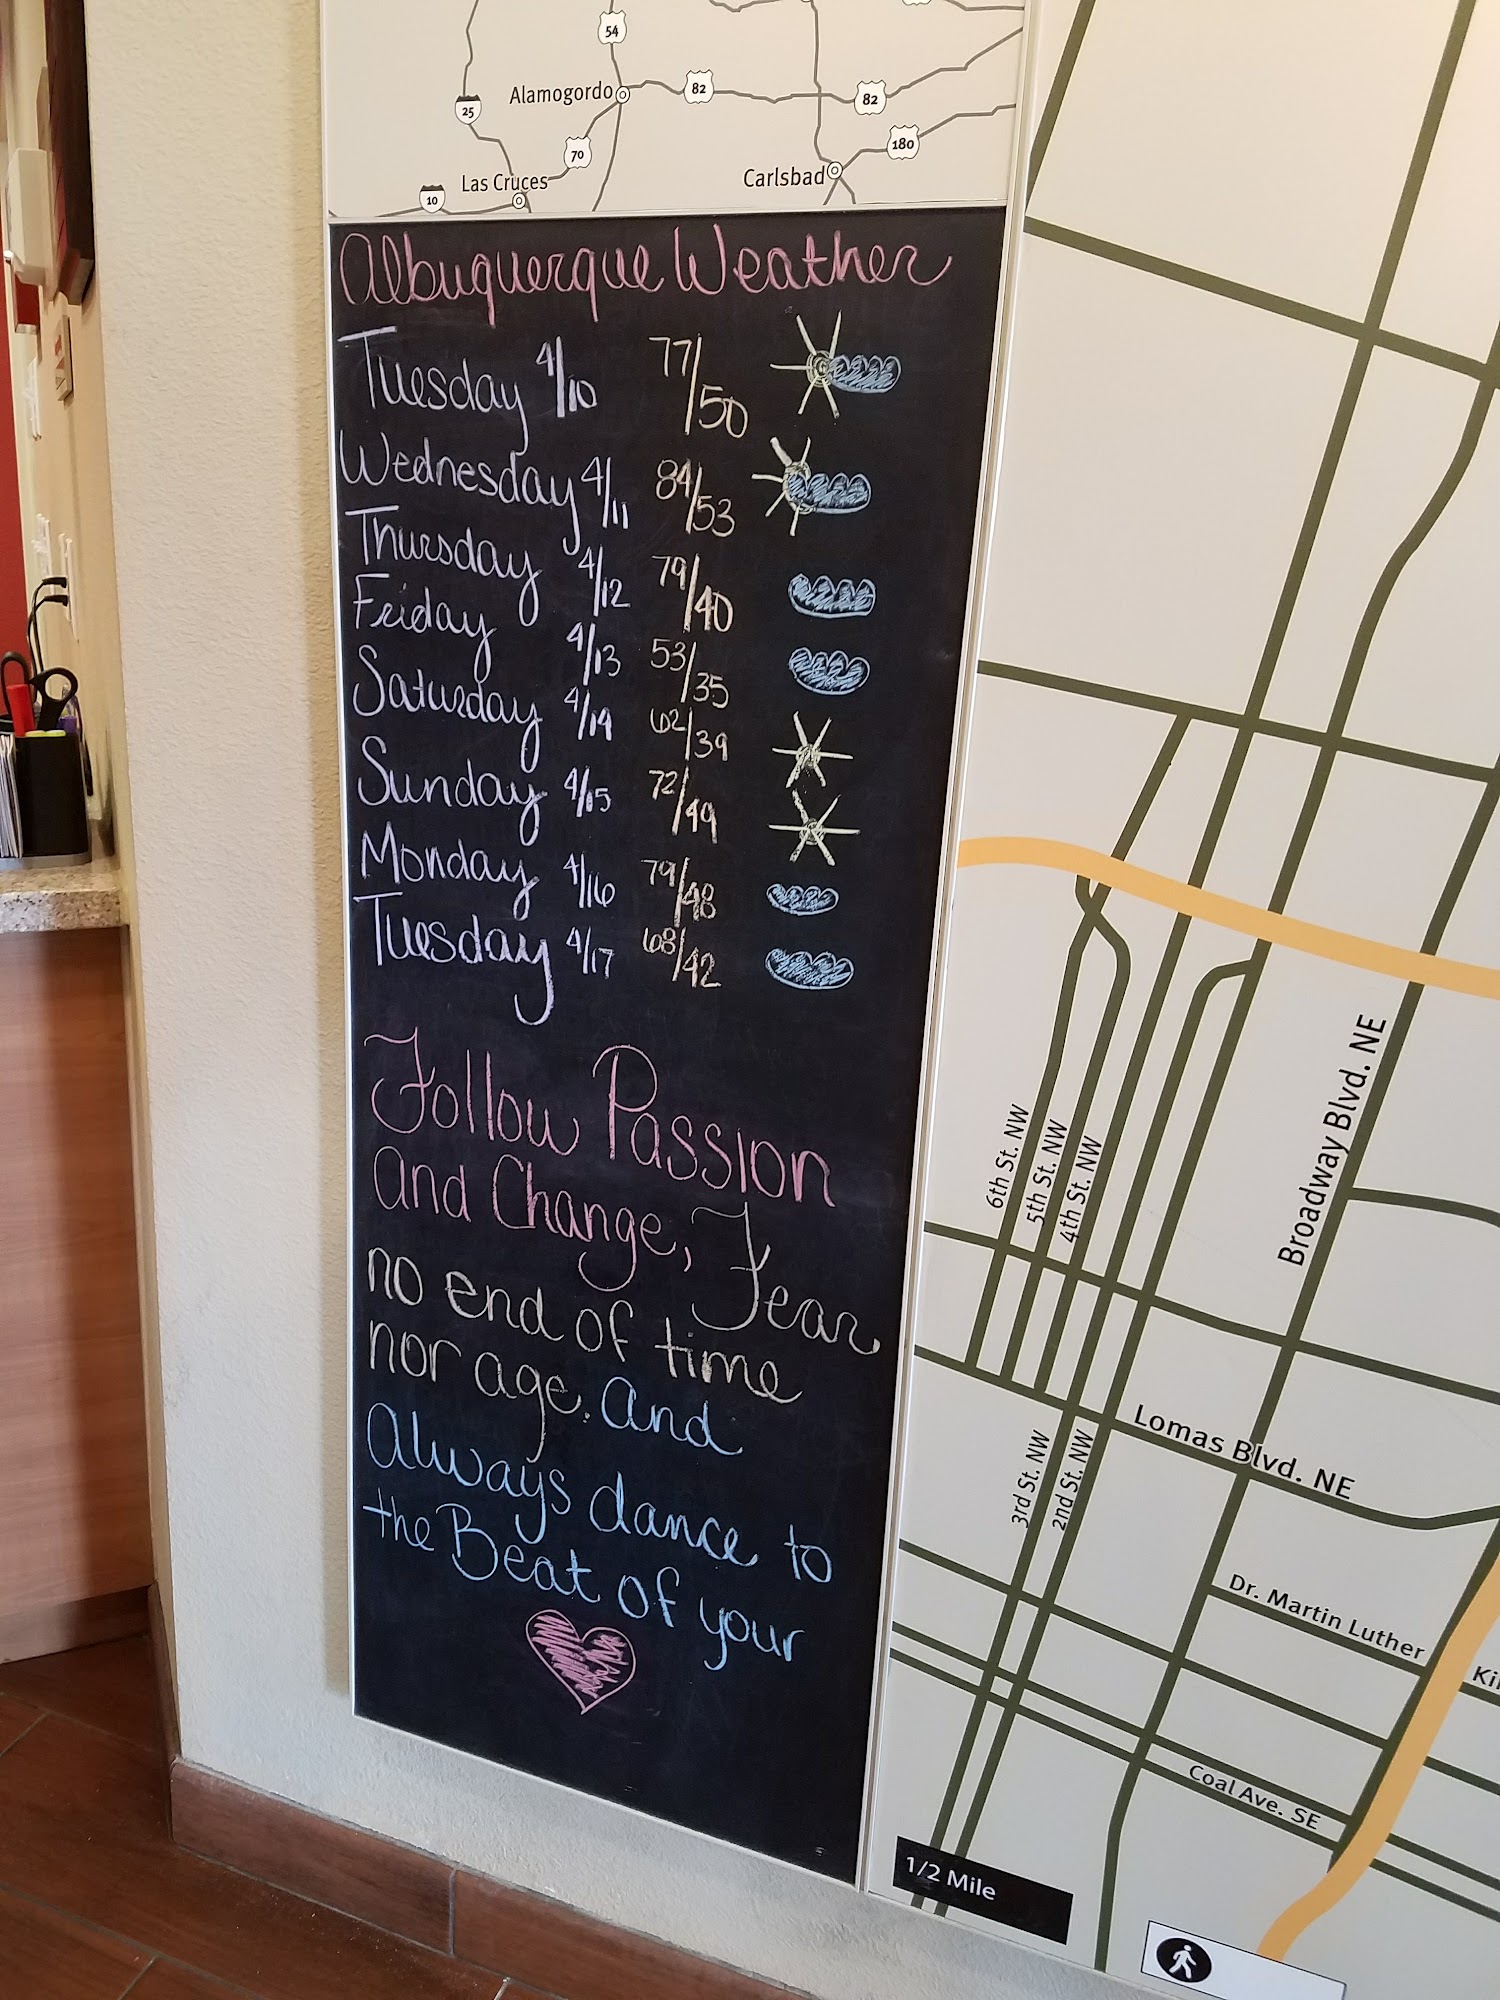 54
Alamogordo
82
82
25
70
180
Las Cruces
Carlsbad
10
Albuquerque Weather
Tuesday 4/10 77/50
Wednesday 4/11 84/53
Thursday 4/12 79/40
Friday 4/13 53/35
Saturday 4/14 62/39
Sunday 4/15 72/49
Monday 4/16 79/48
Tuesday 4/17 68/42
Follow Passion
and Change, Fear
no end of time
nor age. And
Always dance to
the Beat of your
Broadway Blvd. NE
6th St. NW
5th St. NW
4th St. NW
Lomas Blvd. NE
3rd St. NW
2nd St. NW
Dr. Martin Luther
Coal Ave. SE
1/2 Mile